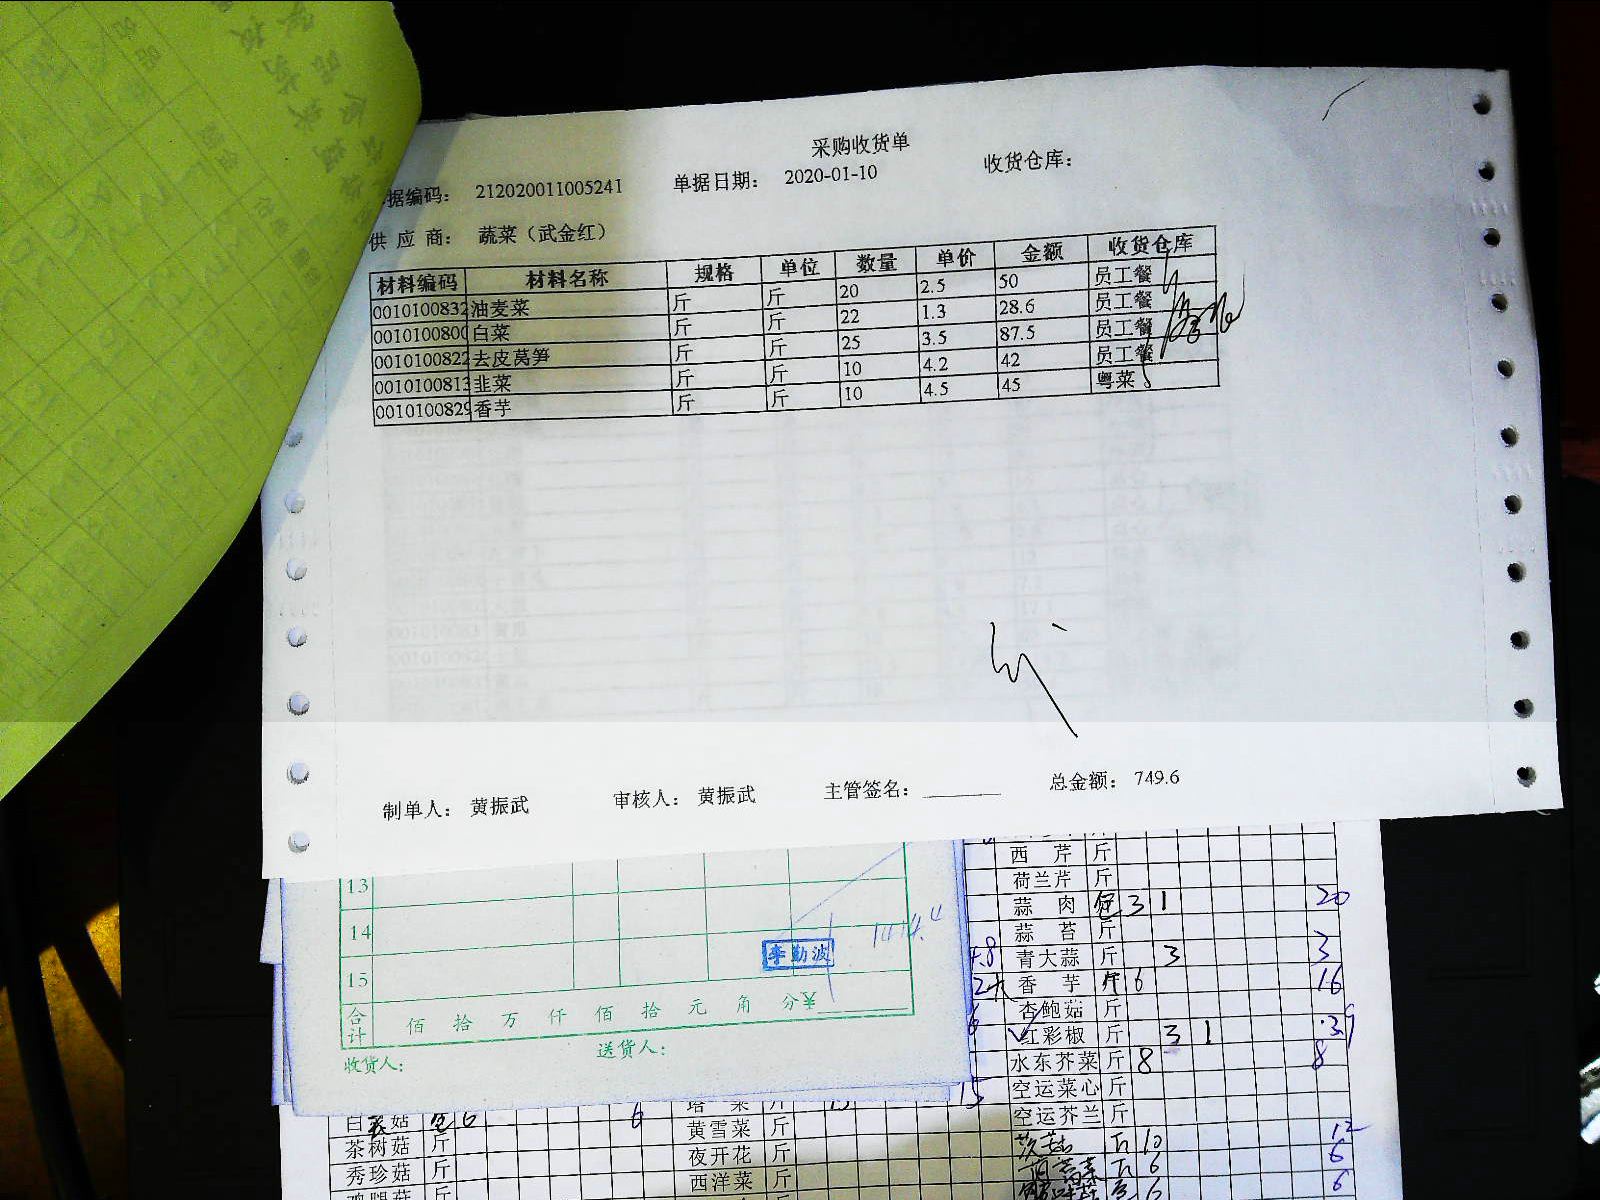 采购收货单
据编码： 212020011005241 单据日期： 2020-01-10 收货仓库：
供应商： 蔬菜（武金红）
材料编码 材料名称 规格 单位 数量 单价 金额 收货仓库
0010100832 油麦菜 斤 斤 20 2.5 50 员工餐
0010100800 白菜 斤 斤 22 1.3 28.6 员工餐
0010100822 去皮莴笋 斤 斤 25 3.5 87.5 员工餐
0010100813 韭菜 斤 斤 10 4.2 42 员工餐
0010100829 香芋 斤 斤 10 4.5 45 粤菜
制单人： 黄振武 审核人： 黄振武 主管签名： 总金额： 749.6
13
14
15
李勤波
合计 佰 拾 万 仟 佰 拾 元 角 分￥
收货人： 送货人：
西芹 斤
荷兰芹 斤
蒜肉 3 1 20
蒜苔 斤
青大蒜 斤 3 3
香芋 斤 6 16
杏鲍菇 斤
红彩椒 斤 3 1
水东芥菜 斤 8 8
空运菜心 斤
空运芥兰 斤
白 菇 6 6 塔菜 斤 15 15
茶树菇 斤 黄雪菜 斤
秀珍菇 斤 夜开花 斤
西洋菜 斤